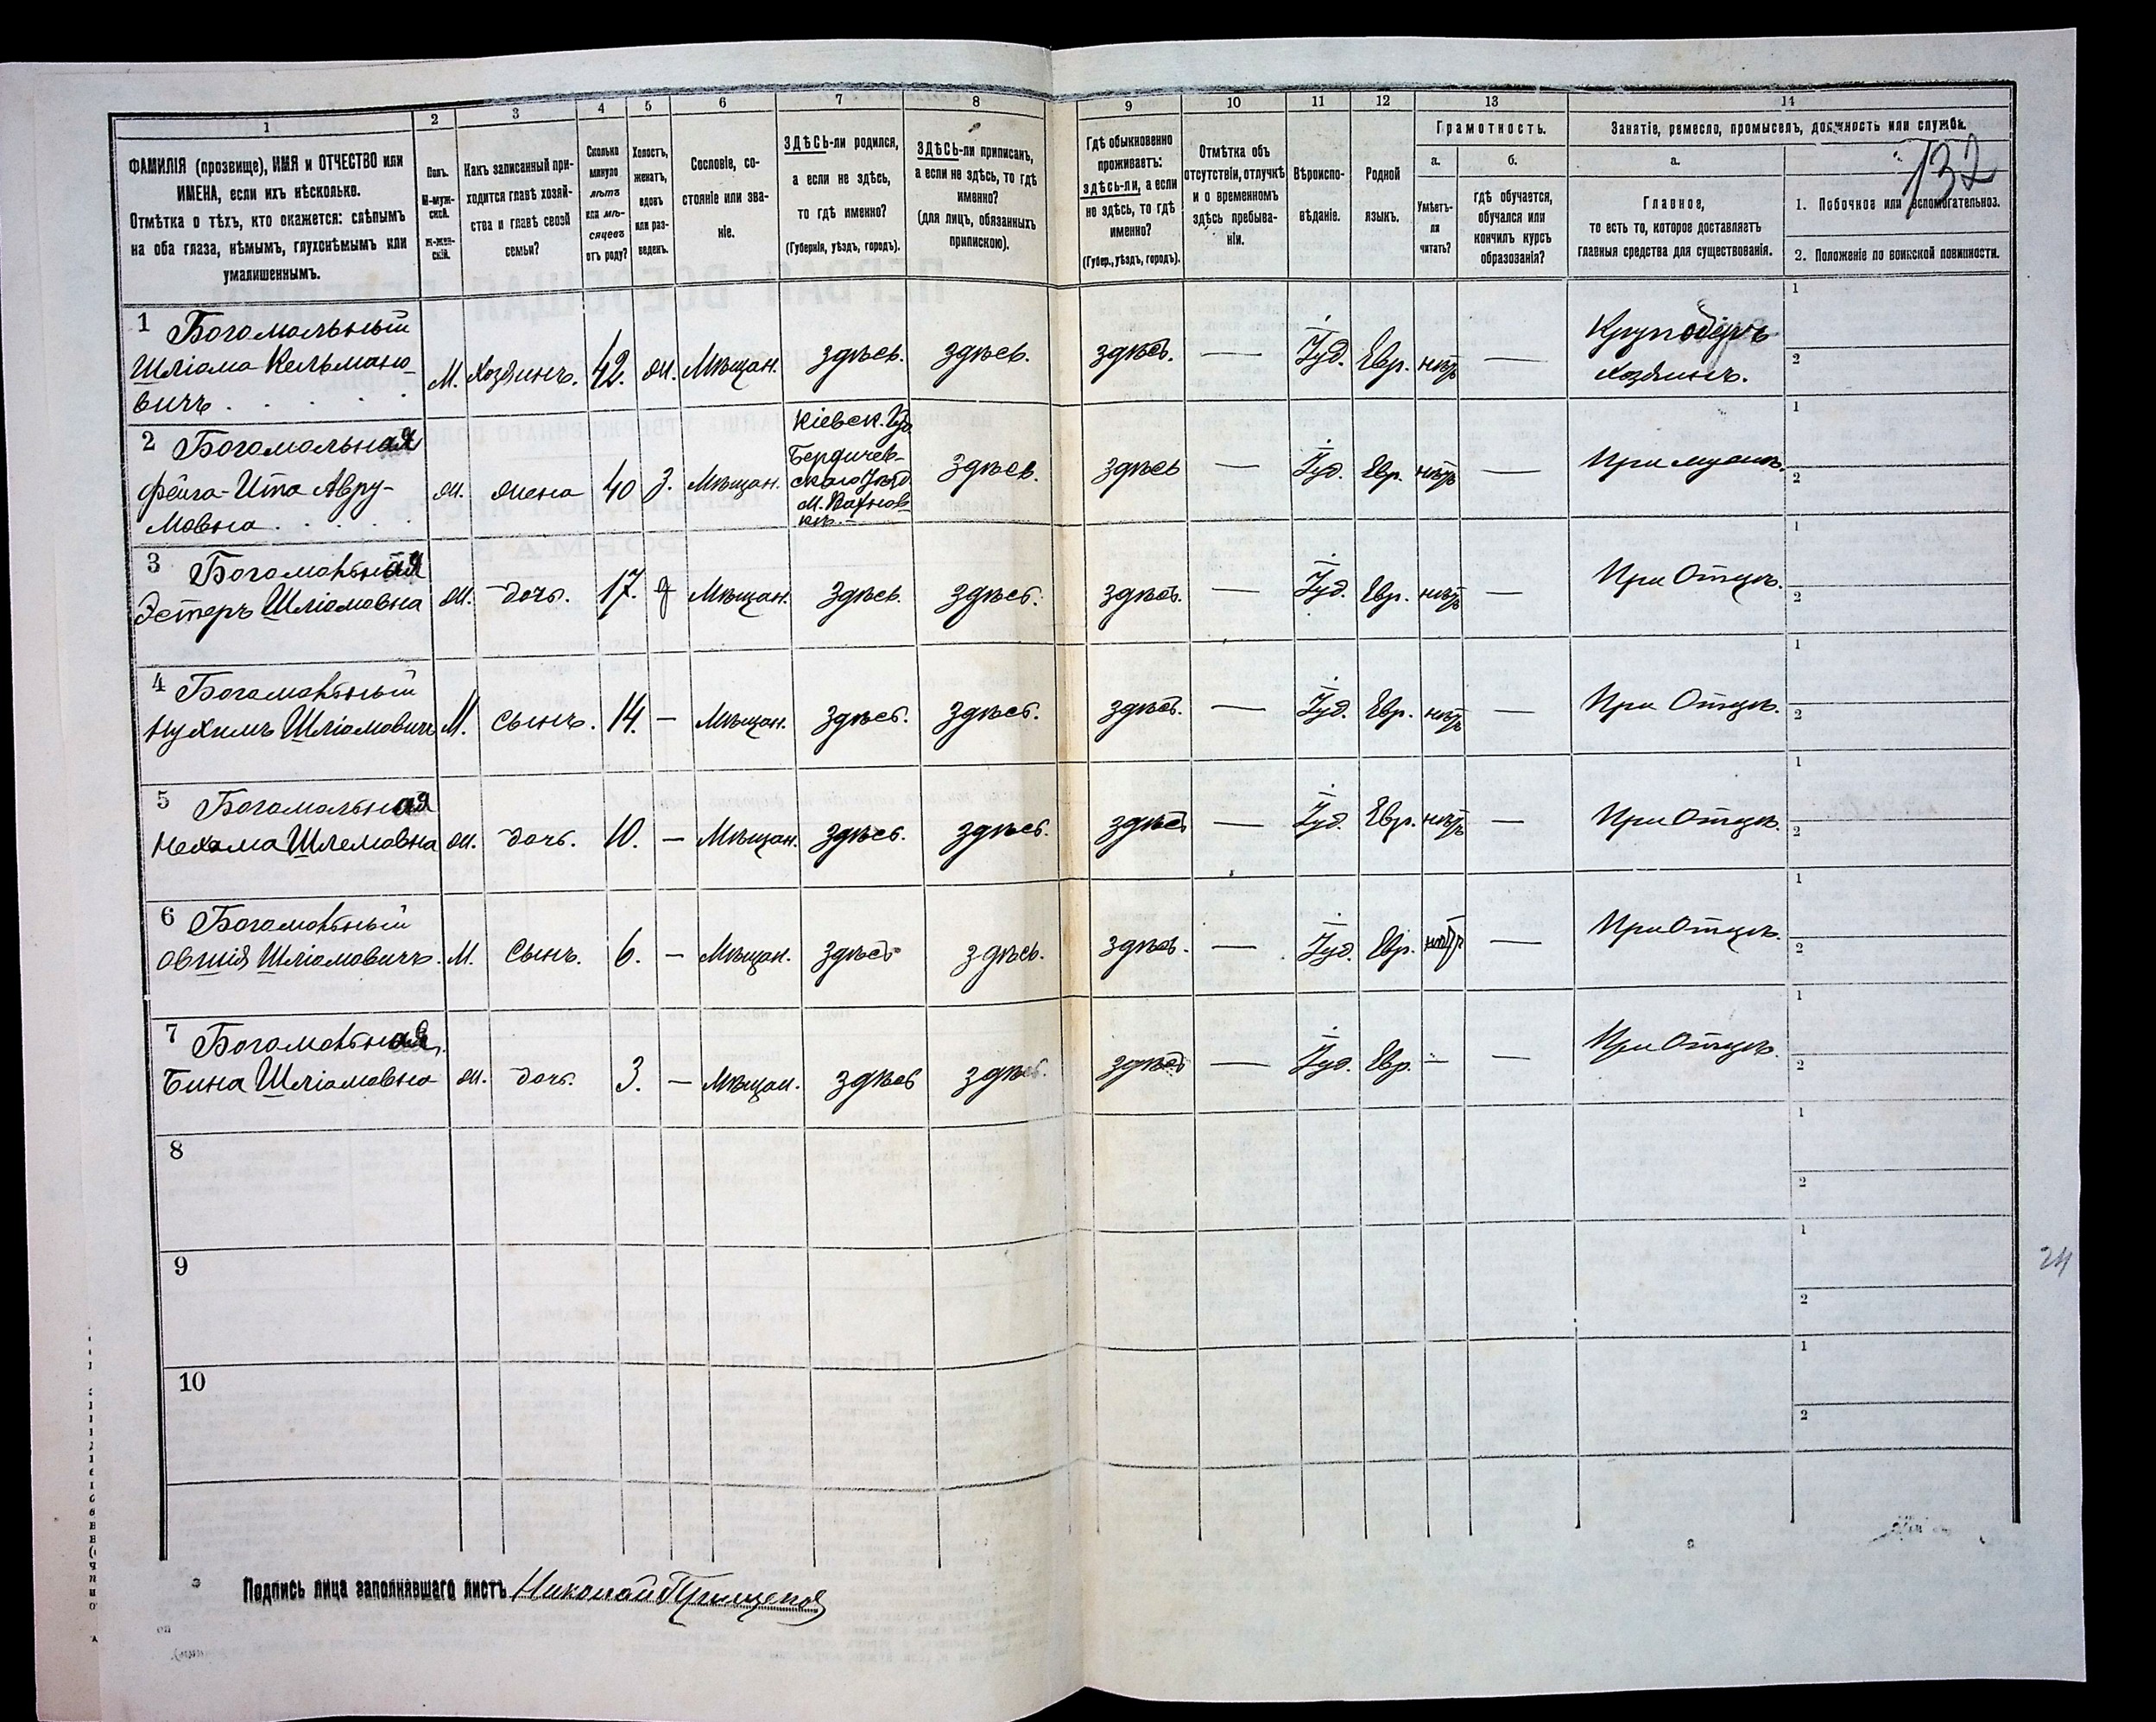 1 2 3 4 5 6 7 8 9 10 11 12 13 14
132
ФАМИЛІЯ (прозвище), ИМЯ и ОТЧЕСТВО или
ИМЕНА, если ихъ нѣсколько.
Отмѣтка о тѣхъ, кто окажется: слѣпымъ
на оба глаза, нѣмымъ, глухонѣмымъ или
умалишеннымъ.
Полъ.
М-муж-
ской.
Ж-жен-
скій.
Какъ записанный при-
ходится главѣ хозяй-
ства и главѣ своей
семьи?
Сколько
минуло
лѣтъ
или мѣ-
сяцевъ
отъ роду?
Холостъ,
женатъ,
вдовъ
или раз-
веденъ.
Сословіе, со-
стояніе или зва-
ніе.
ЗДѢСЬ-ли родился,
а если не здѣсь,
то гдѣ именно?
(Губернія, уѣздъ, городъ).
ЗДѢСЬ-ли приписанъ,
а если не здѣсь, то гдѣ
именно?
(для лицъ, обязанныхъ
припискою).
Гдѣ обыкновенно
проживаетъ:
здѣсь-ли, а если
не здѣсь, то гдѣ
именно?
(Губер., уѣздъ, городъ).
Отмѣтка объ
отсутствіи, отлучкѣ
и о временномъ
здѣсь пребыва-
ніи.
Вѣроиспо-
вѣданіе.
Родной
языкъ.
Грамотность.
а. б.
Умѣетъ-
ли
читать?
гдѣ обучается,
обучался или
кончилъ курсъ
образованія?
Занятіе, ремесло, промыселъ, должность или служба.
а.
Главное,
то есть то, которое доставляетъ
главныя средства для существованія.
1. Побочное или вспомогательное.
2. Положеніе по воинской повинности.
1 Богомольный
Шліома Кельмано-
вичъ . . . . .
М. Хозяинъ. 42. ж. Мѣщан. здѣсь. здѣсь. здѣсь. — Іуд. Евр. нѣтъ —
Крупобіръ
хозяинъ.
1
2
2 Богомольная
Фейга-Ита Авру-
мовна . . . . .
ж. жена 40 з. Мѣщан.
Кіевск. Губ.
Бердичев-
скаго Уѣзд.
м. Вахнов-
кѣ. –
здѣсь. здѣсь — Іуд. Евр. нѣтъ — При мужѣ.
1
2
3 Богомольная
Эстеръ Шліомовна
ж. дочь. 17. д Мѣщан. Здѣсь. здѣсь. здѣсь. — Іуд. Евр. нѣтъ — При Отцѣ.
1
2
4 Богомольный
Нухимъ Шліомовичъ
М. сынъ. 14. — Мѣщан. здѣсь. здѣсь. здѣсь. — Іуд. Евр. нѣтъ — При Отцѣ.
1
2
5 Богомольная
Нехама Шлемовна
ж. дочь. 10. — Мѣщан. здѣсь. здѣсь. здѣсь — Іуд. Евр. нѣтъ — При Отцѣ.
1
2
6 Богомольный
Овшія Шліомовичъ.
М. Сынъ. 6. — Мѣщан. здѣсь здѣсь. здѣсь. — Іуд. Евр. нѣтъ — При Отцѣ.
1
2
7 Богомольная
Бина Шліомовна
ж. дочь. 3. — Мѣщан. здѣсь здѣсь. здѣсь — Іуд. Евр. — — При Отцѣ.
1
2
8
1
2
9
1
2
24
10
1
2
Подпись лица заполнявшаго листъ Николай Прищепов